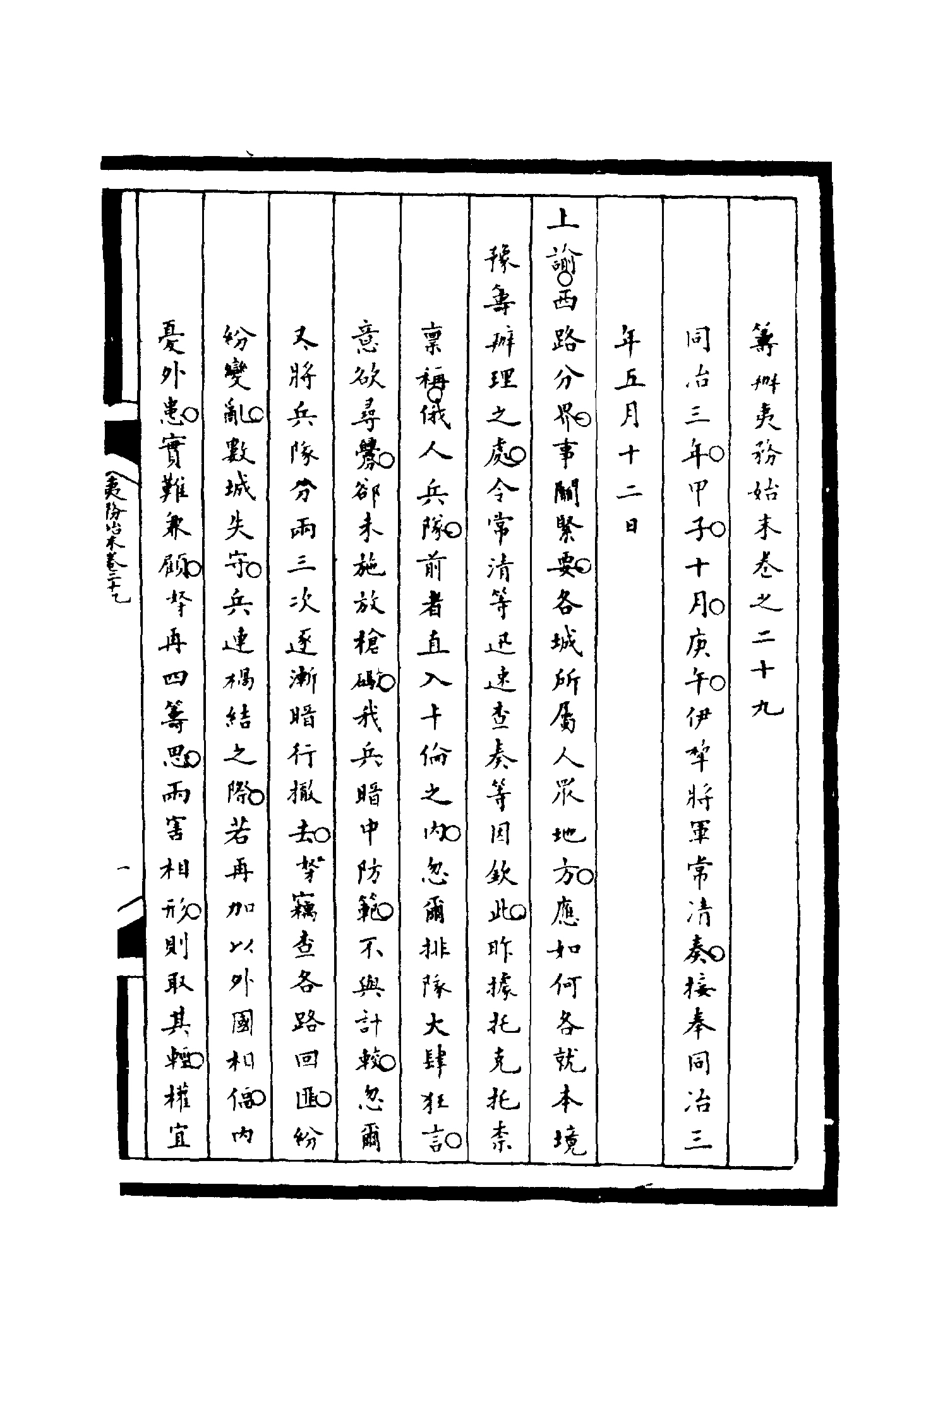 籌辦夷務始末卷之二十九
同治三年○甲子○十月○庚午○伊犂將軍常清奏○接奉同治三
年五月十二日
上諭○西路分界○事關緊要○各城所屬人眾地方○應如何各就本境
豫籌辦理之處○令常清等迅速查奏等因欽此○昨據托克托柰
稟稱○俄人兵隊○前者直入卡倫之內○忽爾排隊大肆狂言○
意欲尋釁○卻未施放槍礮○我兵暗中防範○不與計較○忽爾
又將兵隊分兩三次逐漸暗行撤去○奴才竊查各路回匪○紛
紛變亂○數城失守○兵連禍結之際○若再加以外國相偪○內
憂外患○實難兼顧○奴才再四籌思○兩害相形○則取其輕○權宜
夷務始末卷二十九
一